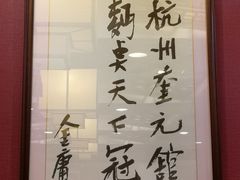 杭州奎元館
麪点天下冠
金庸